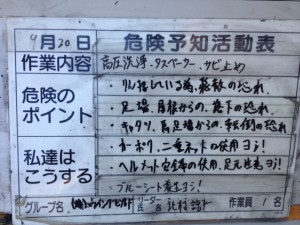 9月20日 危険予知活動表
作業内容 高圧洗浄・タスペーサー・サビ止め
危険の
ポイント
・足場、屋根からの、落下の恐れ
・キャタツ、馬足場からの、転倒の恐れ
私達は
こうする
・カーボリ、二重ネットの使用ヨシ!
・ヘルメット安全帯の使用、足元注意ヨシ!
・ブルーシート養生ヨシ!
グループ名 リーダー氏名 作業員 1名